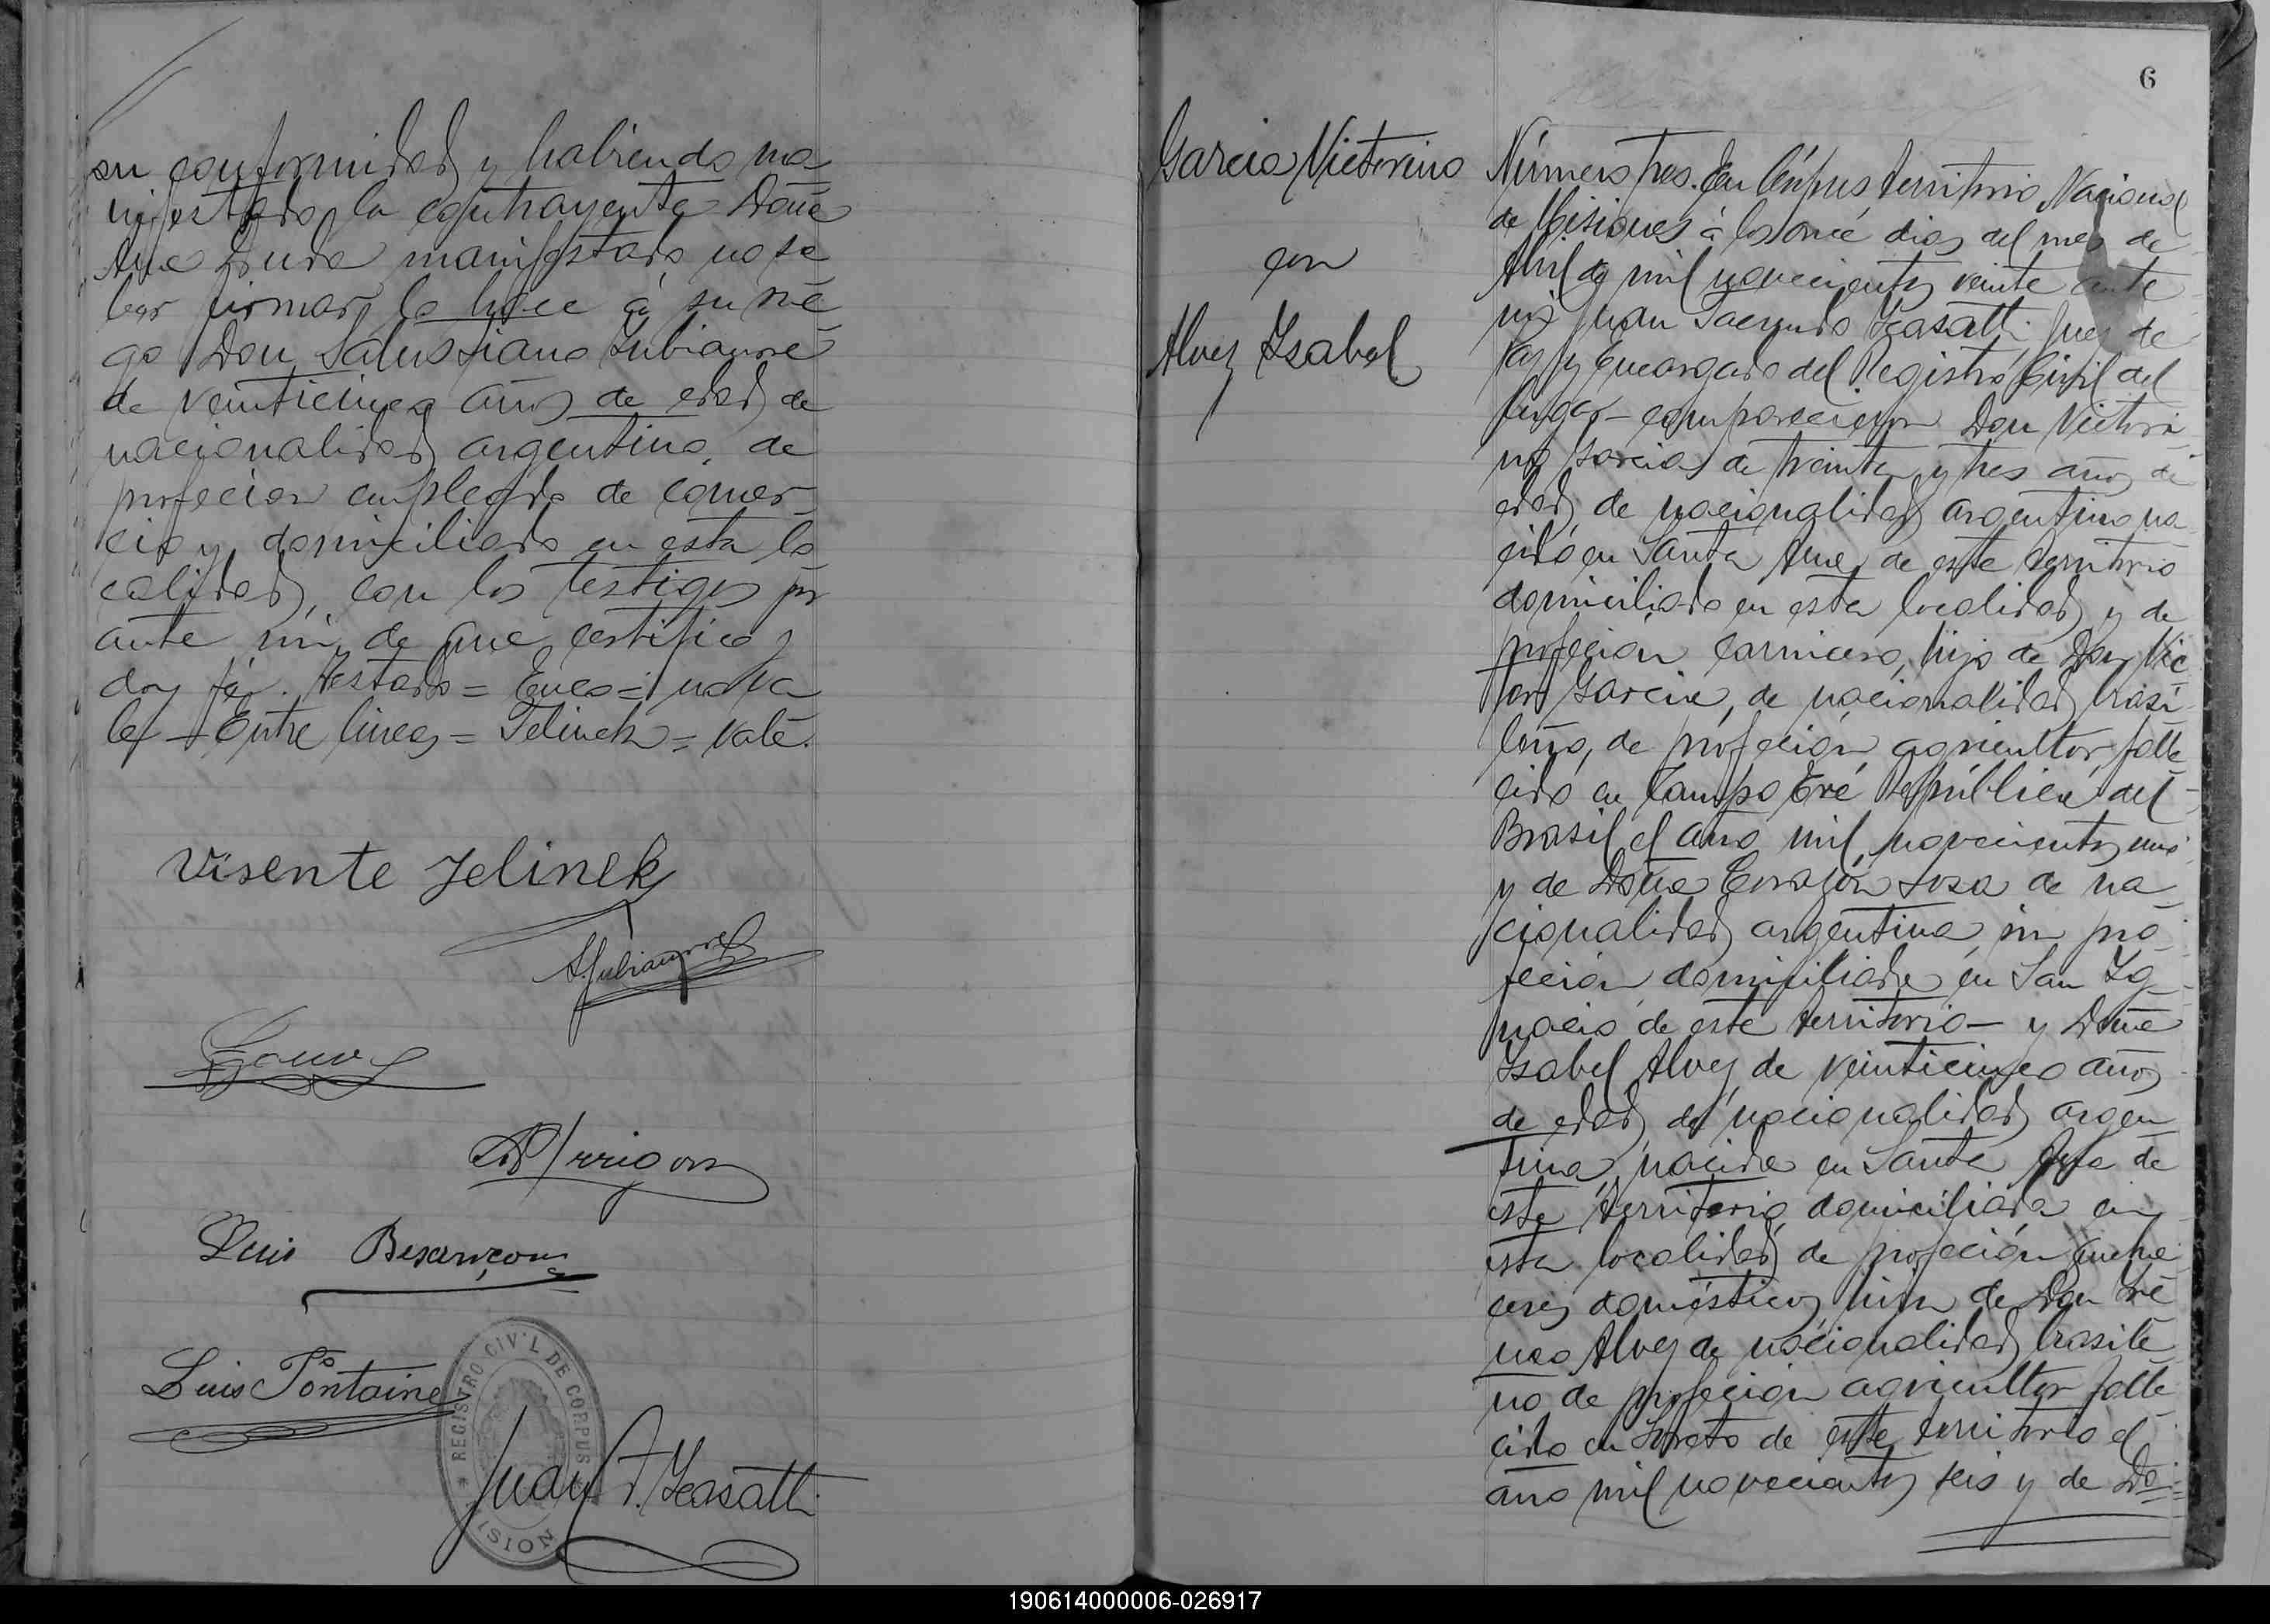 su conformidad y habiendo ma
nifestado la contrayente Doña
Ana Druda manifestado no sa
ber firmar, lo hace á su rue
go Don Salustiano Lubiaurre
de veinticinco años de edad, de
nacionalidad argentino, de
profecion empleado de comer-
cio y domiciliado en esta lo
calidad, con los testigos por
ante mi de que certifico y
doy fé. Testado = = no va
le — Entre lineas = Jelinek = Vale.
Visente Jelinek
Luis Besançon
Luis Fontaine
REGISTRO CIVIL DE CORPUS
Juan F. Yeasatti
6
Garcia Victorino
con
Alvez Isabel
Número tres. En Córpus territorio Nacional
de Misiones á los once dias del mes de
Abril de mil novecientos veinte ante
mi Juan Facundo Yeasatti, Juez de
Paz y Encargado del Registro Civil del
lugar — comparecieron Don Victori
no Garcia de treinta y tres años de
edad, de nacionalidad argentino na
cido en Santa Ana, de este territorio
domiciliado en esta localidad y de
profecion carnicero, hijo de Don Vic
tor Garcia, de nacionalidad brasi
leño, de profeción agricultor, falle
cido en Campo Eré República del
Brasil el año mil novecientos uno
y de Doña Corazón Sosa de na
cionalidad argentina, sin pro
feción domiciliada en San Ig
nacio de este territorio — y Doña
Isabel Alvez de veinticinco años
de edad, de nacionalidad argen
tina, nacida en Santa Ana de
este territorio domiciliada en
esta localidad de profeción queha
ceres domésticos, hija de Don
Alvez de nacionalidad brasile
ño de profecion agricultor falle
cido en Loreto de este territorio el
año mil novecientos seis y de Do
190614000006-026917